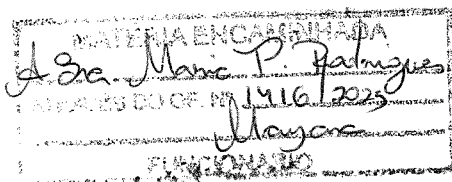 MATÉRIA ENCAMINHADA
A Sra. Maria P. Rodrigues
ATRAVÉS DO OF. Nº 1416/2025
Mayara
FUNCIONÁRIO